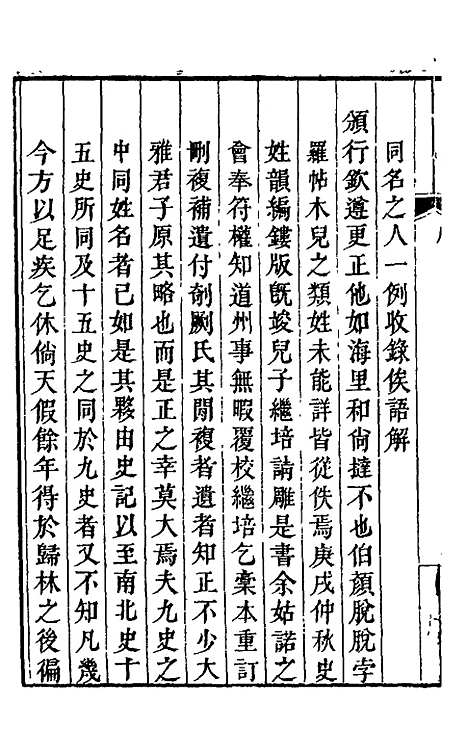 同名之人一例收錄俟語解
頒行欽遵更正他如海里和尙撻不也伯顏脫脫孛
羅帖木兒之類姓未能詳皆從佚焉庚戌仲秋史
姓韻編鏤版旣竣兒子繼培請雕是書余姑諾之
會奉符權知道州事無暇覆校繼培乞橐本重訂
刪複補遺付剞劂氏其閒複者遺者知正不少大
雅君子原其略也而是正之幸莫大焉夫九史之
中同姓名者已如是其夥由史記以至南北史十
五史所同及十五史之同於九史者又不知凡幾
今方以足疾乞休倘天假餘年得於歸林之後徧